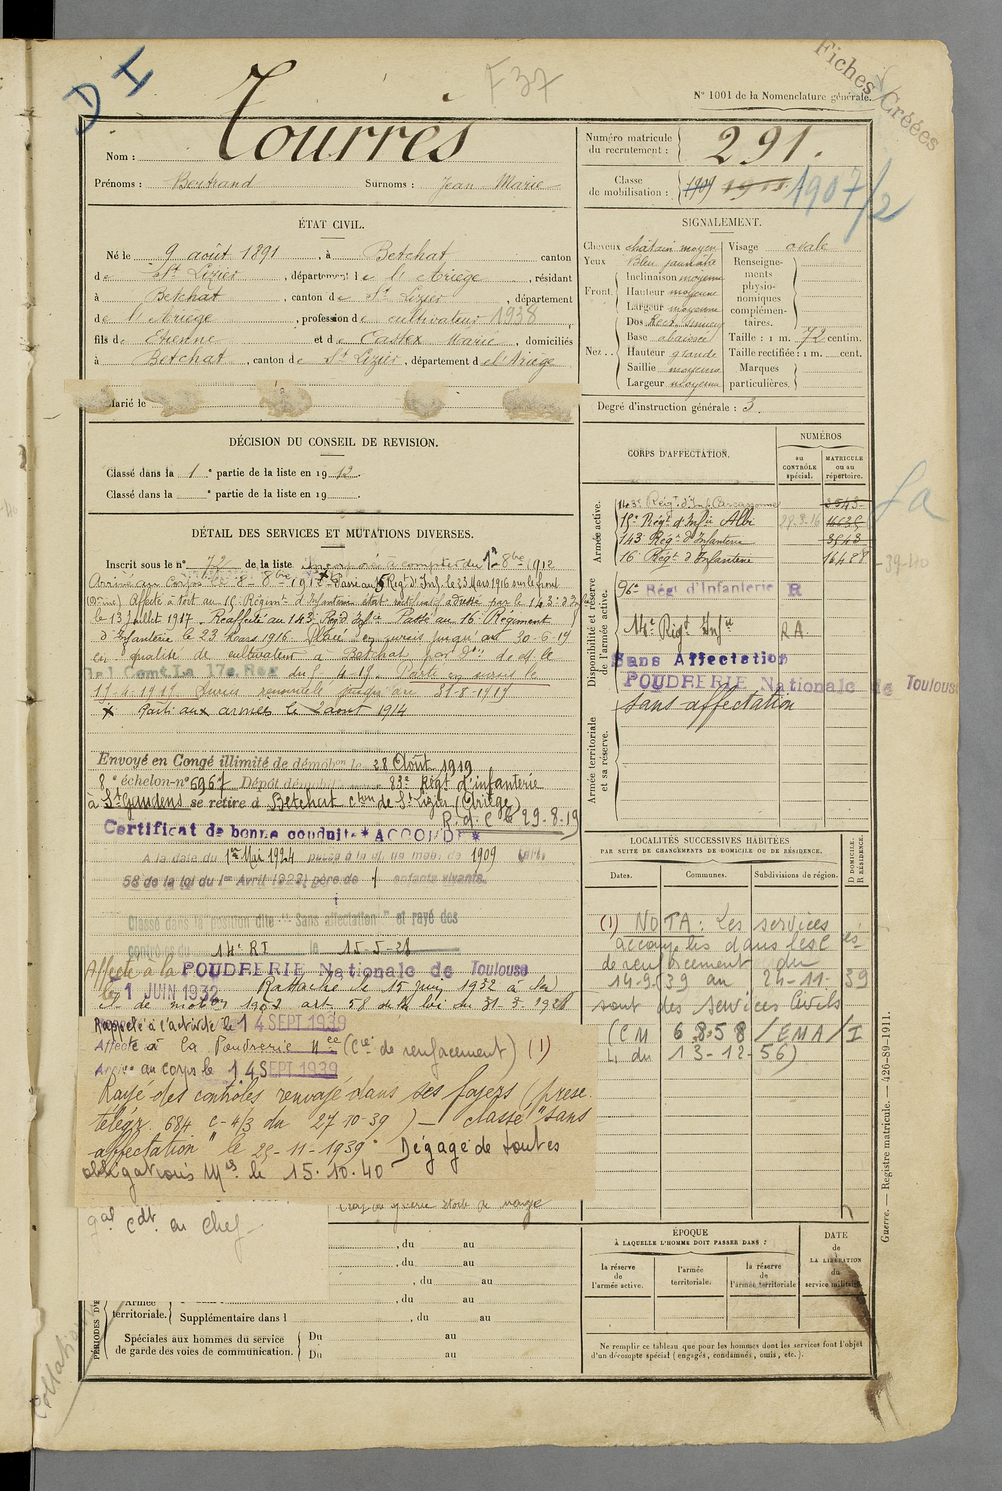 D I
F 37
Fiches Créées
N° 1001 de la Nomenclature générale.
Nom : Tourrès
Prénoms : Bertrand Surnoms : Jean Marie
Numéro matricule du recrutement : 291.
Classe de mobilisation : 1907/2
ÉTAT CIVIL.
Né le 9 août 1891, à Betchat canton
de St Lizier, département de l'Ariège, résidant
à Betchat, canton de St Lizier, département
de l'Ariège, profession de cultivateur 1938
fils de Etienne et de Castex Marie, domiciliés
à Betchat, canton de St Lizier, département de l'Ariège
Marié le
SIGNALEMENT.
Cheveux châtain moyen
Yeux Bleu jaunâtre
Front. Inclinaison moyenne
Hauteur moyenne
Largeur moyenne
Nez. Dos Rect. sinueux
Base abaissée
Hauteur grande
Saillie moyenne
Largeur moyenne
Visage ovale
Renseignements physionomiques complémentaires.
Taille : 1 m. 72 centim.
Taille rectifiée : 1 m. cent.
Marques particulières.
Degré d'instruction générale : 3.
DÉCISION DU CONSEIL DE REVISION.
Classé dans la 1e partie de la liste en 1912.
Classé dans la e partie de la liste en 19 .
DÉTAIL DES SERVICES ET MUTATIONS DIVERSES.
Inscrit sous le n° 72 de la liste Incorporé à compter du 1er 8bre 1912
Arrivé au corps le 8 8bre 1912 Passé au Régt d'Inf. le 23 Mars 1916 sur le front
Affecté à tort au 15 Régimt d'Infanterie état rectificatif adressé par le 143e d'Inf
le 13 Juillet 1917. Réaffecté au 143 Régt d'Infie Passé au 16 Régiment
d'Infanterie le 23 Mars 1916. Placé en sursis jusqu'au 30-6-17
en qualité de cultivateur à Betchat par Don de Mr le
Gal Comt La 17e Reg du 7-4-17. Parti en sursis le
17-4-1917. Sursis renouvelé jusqu'au 31-5-1917
x Parti aux armées le 2 aout 1914
Envoyé en Congé illimité de démobon le 28 Août 1919
8e échelon n° 5967 Dépôt démobilisateur 83e Régt d'infanterie
à St Gaudens se retire à Betchat cton de St Lizier (Ariège)
R. d. C le 29-8-19
Certificat de bonne conduite * ACCORDÉ *
A la date du 1er Mai 1924 passé à la cl. de mob. de 1909 (art.
58 de la loi du 1er Avril 1923) père de 1 enfants vivants.
Classé dans la position dite "Sans affectation" et rayé des
contrôles du 14e RI le 15-5-28
Affecté à la POUDRERIE Nationale de Toulouse
le 1 JUIN 1932 Rattaché le 15 juin 1932 à la
cl. de mobon 1907 art. 58 de la loi du 31-3-1928
Rappelé à l'activité le 14 SEPT 1939
Affecté à la Poudrerie Nle (Cie de renforcement) (1)
Arrivé au corps le 14 SEPT 1939
Rayé des contrôles renvoyé dans ses foyers (prese
télégr. 684 C-4/3 du 27 10-39) — classé "sans
affectation" le 25-11-1939. Dégagé de toutes
obligations Mres le 15.10.40
gal cdt en chef
Croix de guerre étoile de
CORPS D'AFFECTATION.
NUMÉROS
au CONTRÔLE spécial.
MATRICULE ou au répertoire.
Armée active.
143e Régt d'Inf. Carcassonne 3543
15e Régt d'Infie Albi 29.8.16
143 Régt d'Infanterie 3543
16e Régt d'Infanterie 16488
39-40
Disponibilité et réserve de l'armée active.
96e Régt d'Infanterie R
14e Régt Infie R.A.
Sans Affectation
POUDRERIE Nationale de Toulouse
sans affectation
Armée territoriale et sa réserve.
LOCALITÉS SUCCESSIVES HABITÉES
PAR SUITE DE CHANGEMENTS DE DOMICILE OU DE RÉSIDENCE.
Dates. Communes. Subdivisions de région. D DOMICILE. R RÉSIDENCE.
(1) NOTA : Les services
accomplis dans les Cies
de renforcement du
14-9-39 au 24-11-39
sont des services civils
(CM 6858/EMA/I
L du 13-12-56)
, du au
, du au
, du au
, du au
Armée territoriale. Supplémentaire dans l , du au
Spéciales aux hommes du service de garde des voies de communication. Du au
Du au
ÉPOQUE
À LAQUELLE L'HOMME DOIT PASSER DANS :
la réserve de l'armée active.
l'armée territoriale.
la réserve de l'armée territoriale
DATE de LA LIBÉRATION du service militaire.
Ne remplir ce tableau que pour les hommes dont les services font l'objet
d'un décompte spécial (engagés, condamnés, omis, etc.).
Guerre. — Registre matricule. — 426-89-1911.